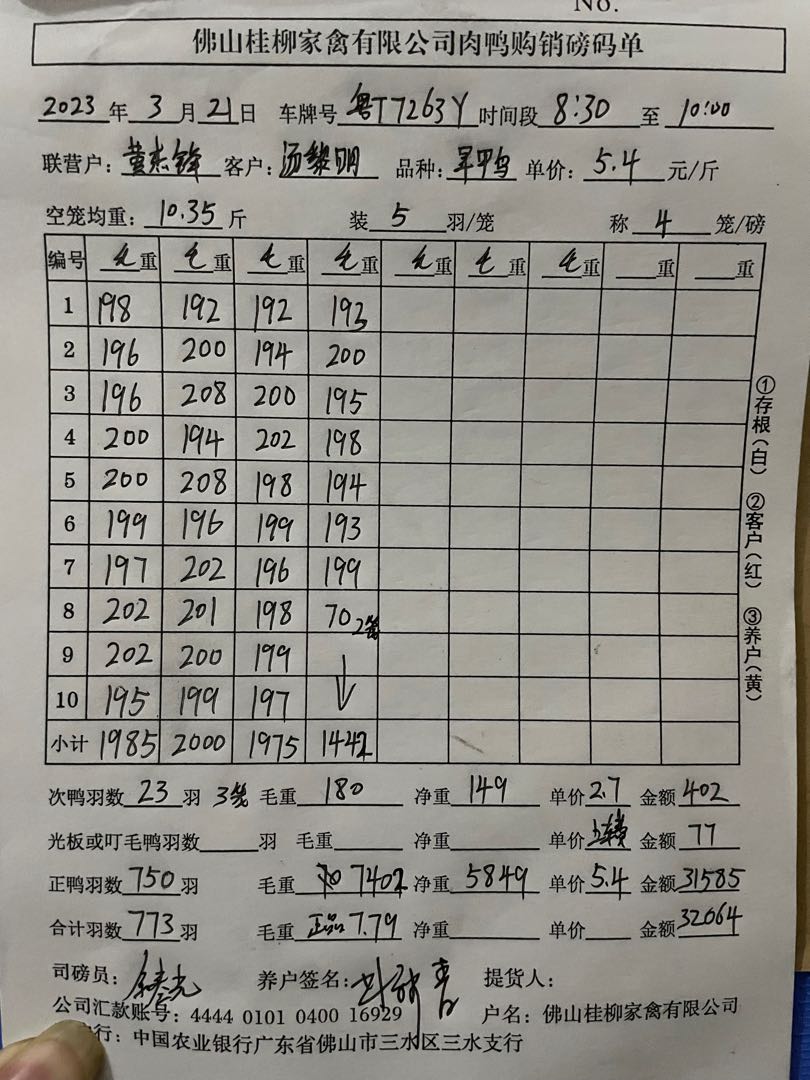 No.
佛山桂柳家禽有限公司肉鸭购销磅码单
2023年3月21日 车牌号粤T7263Y时间段8:30至10:00
联营户:黄志锋 客户:汤黎明 品种:旱鸭 单价:5.4元/斤
空笼均重:10.35斤 装5羽/笼 称4笼/磅
编号 毛重 毛重 毛重 毛重 毛重 毛重 毛重 重 重
1 198 192 192 193
2 196 200 194 200
3 196 208 200 195
4 200 194 202 198
5 200 208 198 194
6 199 196 199 193
7 197 202 196 199
8 202 201 198 70 2笼
9 202 200 199
10 195 199 197
小计 1985 2000 1975 1442
次鸭羽数23羽 3笼 毛重180 净重149 单价2.7 金额402
光板或叮毛鸭羽数羽 毛重 净重 单价 金额77
正鸭羽数750羽 毛重7402 净重5849 单价5.4 金额31585
合计羽数773羽 毛重正品7.79 净重 单价 金额32064
司磅员: 养户签名: 提货人:
公司汇款账号:4444 0101 0400 16929 户名:佛山桂柳家禽有限公司
行:中国农业银行广东省佛山市三水区三水支行
①存根(白) ②客户(红) ③养户(黄)